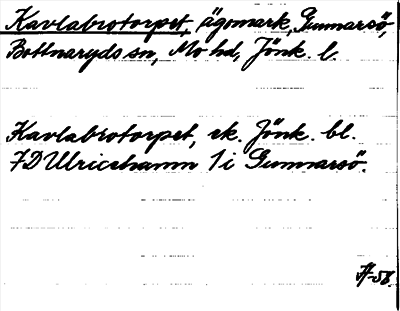 Kavlabrotorpet, ägomark, Gunnarsö,
Bottnaryds sn, Mo hd, Jönk. l.
Kavlabrotorpet, ek. Jönk. bl.
7D Ulricehamn 1 i Gunnarsö.